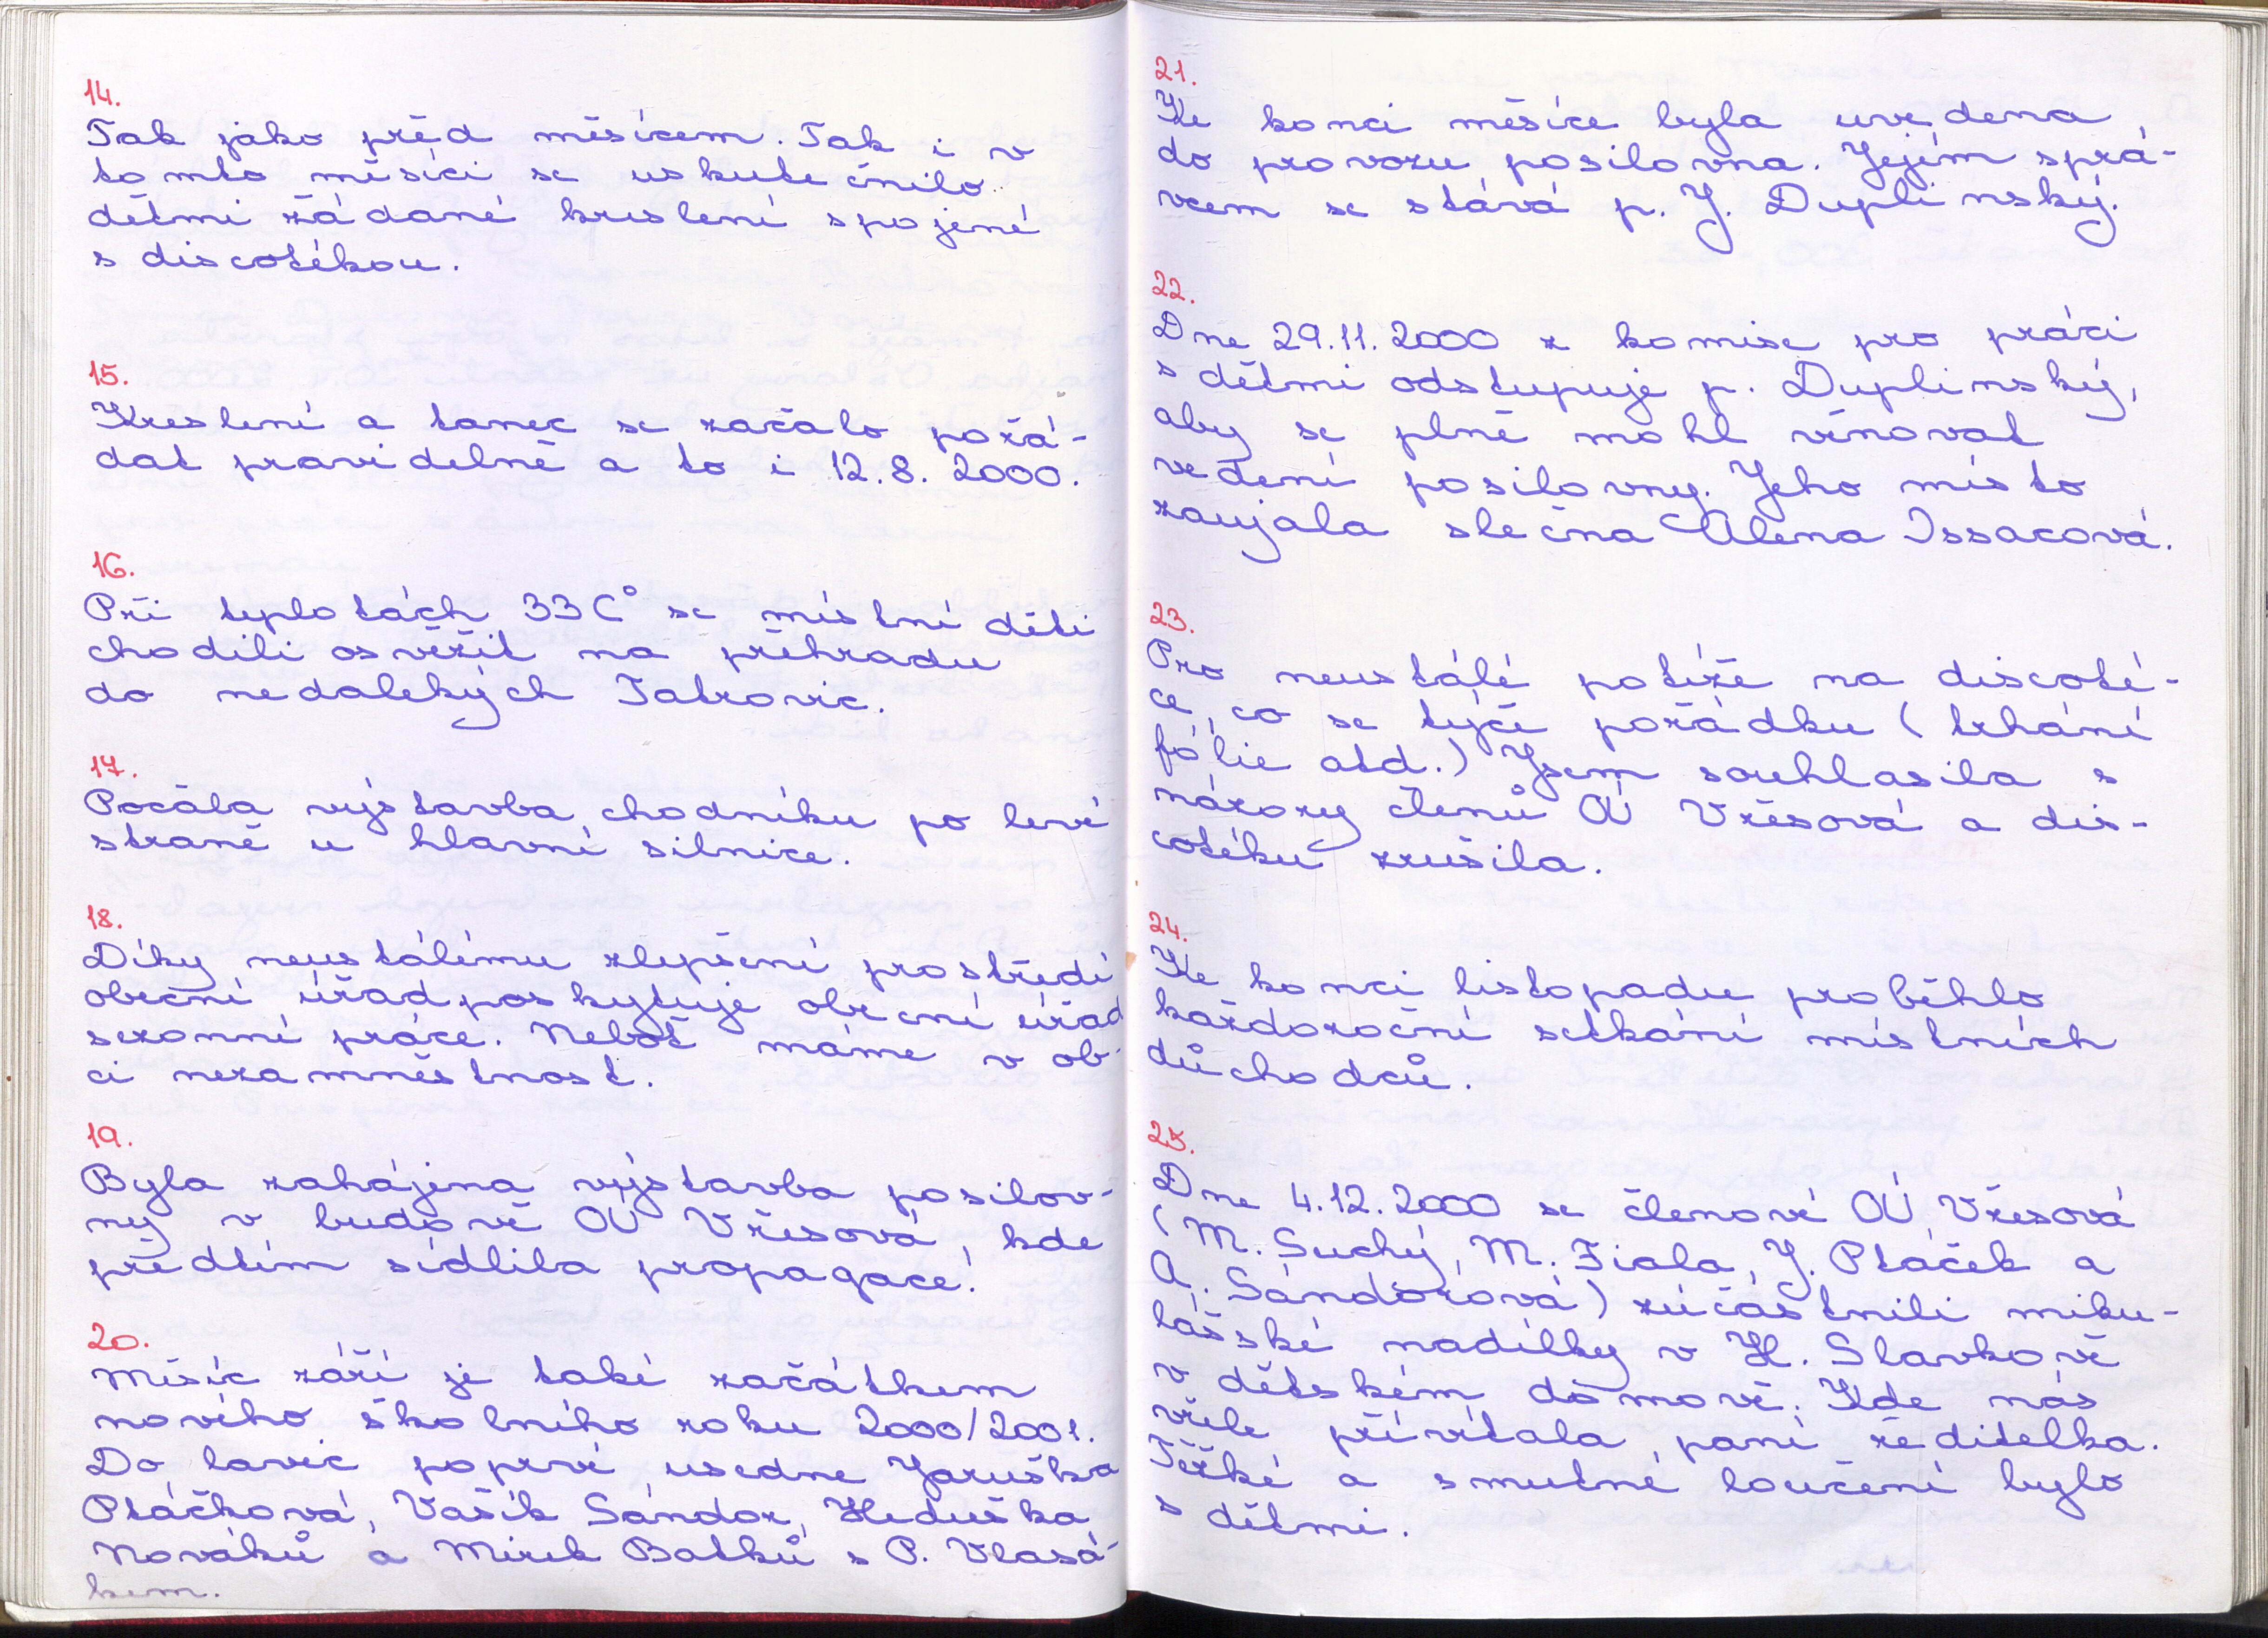 14.
Tak jako před měsícem. Tak i v
tomto měsíci se uskutečnilo
dětmi žádané kreslení spojené
s discotékou.
15.
Kreslení a tanec se začalo pořá-
dat pravidelně a to i 12.8. 2000.
16.
Při teplotách 33 C° se místní děti
chodili osvěžit na přehradu
do nedalekých Tatrovic.
17.
Počala výstavba chodníku po levé
straně u hlavní silnice.
18.
Díky neustálému zlepšení prostředí
obecní úřad poskytuje obecní úřad
sezonní práce. Neboť máme v ob-
ci nezaměstnost.
19.
Byla zahájena výstavba posilov-
ny v budově OÚ Vřesová, kde
předtím sídlila propagace.
20.
Měsíc září je také začátkem
nového školního roku 2000/2001.
Do lavic poprvé usedne Jaruška
Ptáčková, Vašík Sándor, Heduška
Nováků a Mirek Baťků s P. Vlasá-
kem.
21.
Ke konci měsíce byla uvedena
do provozu posilovna. Jejím sprá-
vcem se stává p. J. Duplinský.
22.
Dne 29.11.2000 z komise pro práci
s dětmi odstupuje p. Duplinský,
aby se plně mohl věnovat
vedení posilovny. Jeho místo
zaujala slečna Alena Issacová.
23.
Pro neustálé potíže na discoté-
ce, co se týče pořádku (trhání
fólie atd.) Jsem souhlasila s
názory členů OÚ Vřesová a dis-
cotéku zrušila.
24.
Ke konci listopadu proběhlo
každoroční setkání místních
důchodců.
25.
Dne 4.12.2000 se členové OÚ Vřesová
(M. Suchý, M. Fiala, J. Ptáček a
A. Sándorová) zúčastnili miku-
lášské nadílky v H. Slavkově
v dětském domově. Kde nás
vřele přivítala paní ředitelka.
Těžké a smutné loučení bylo
s dětmi.